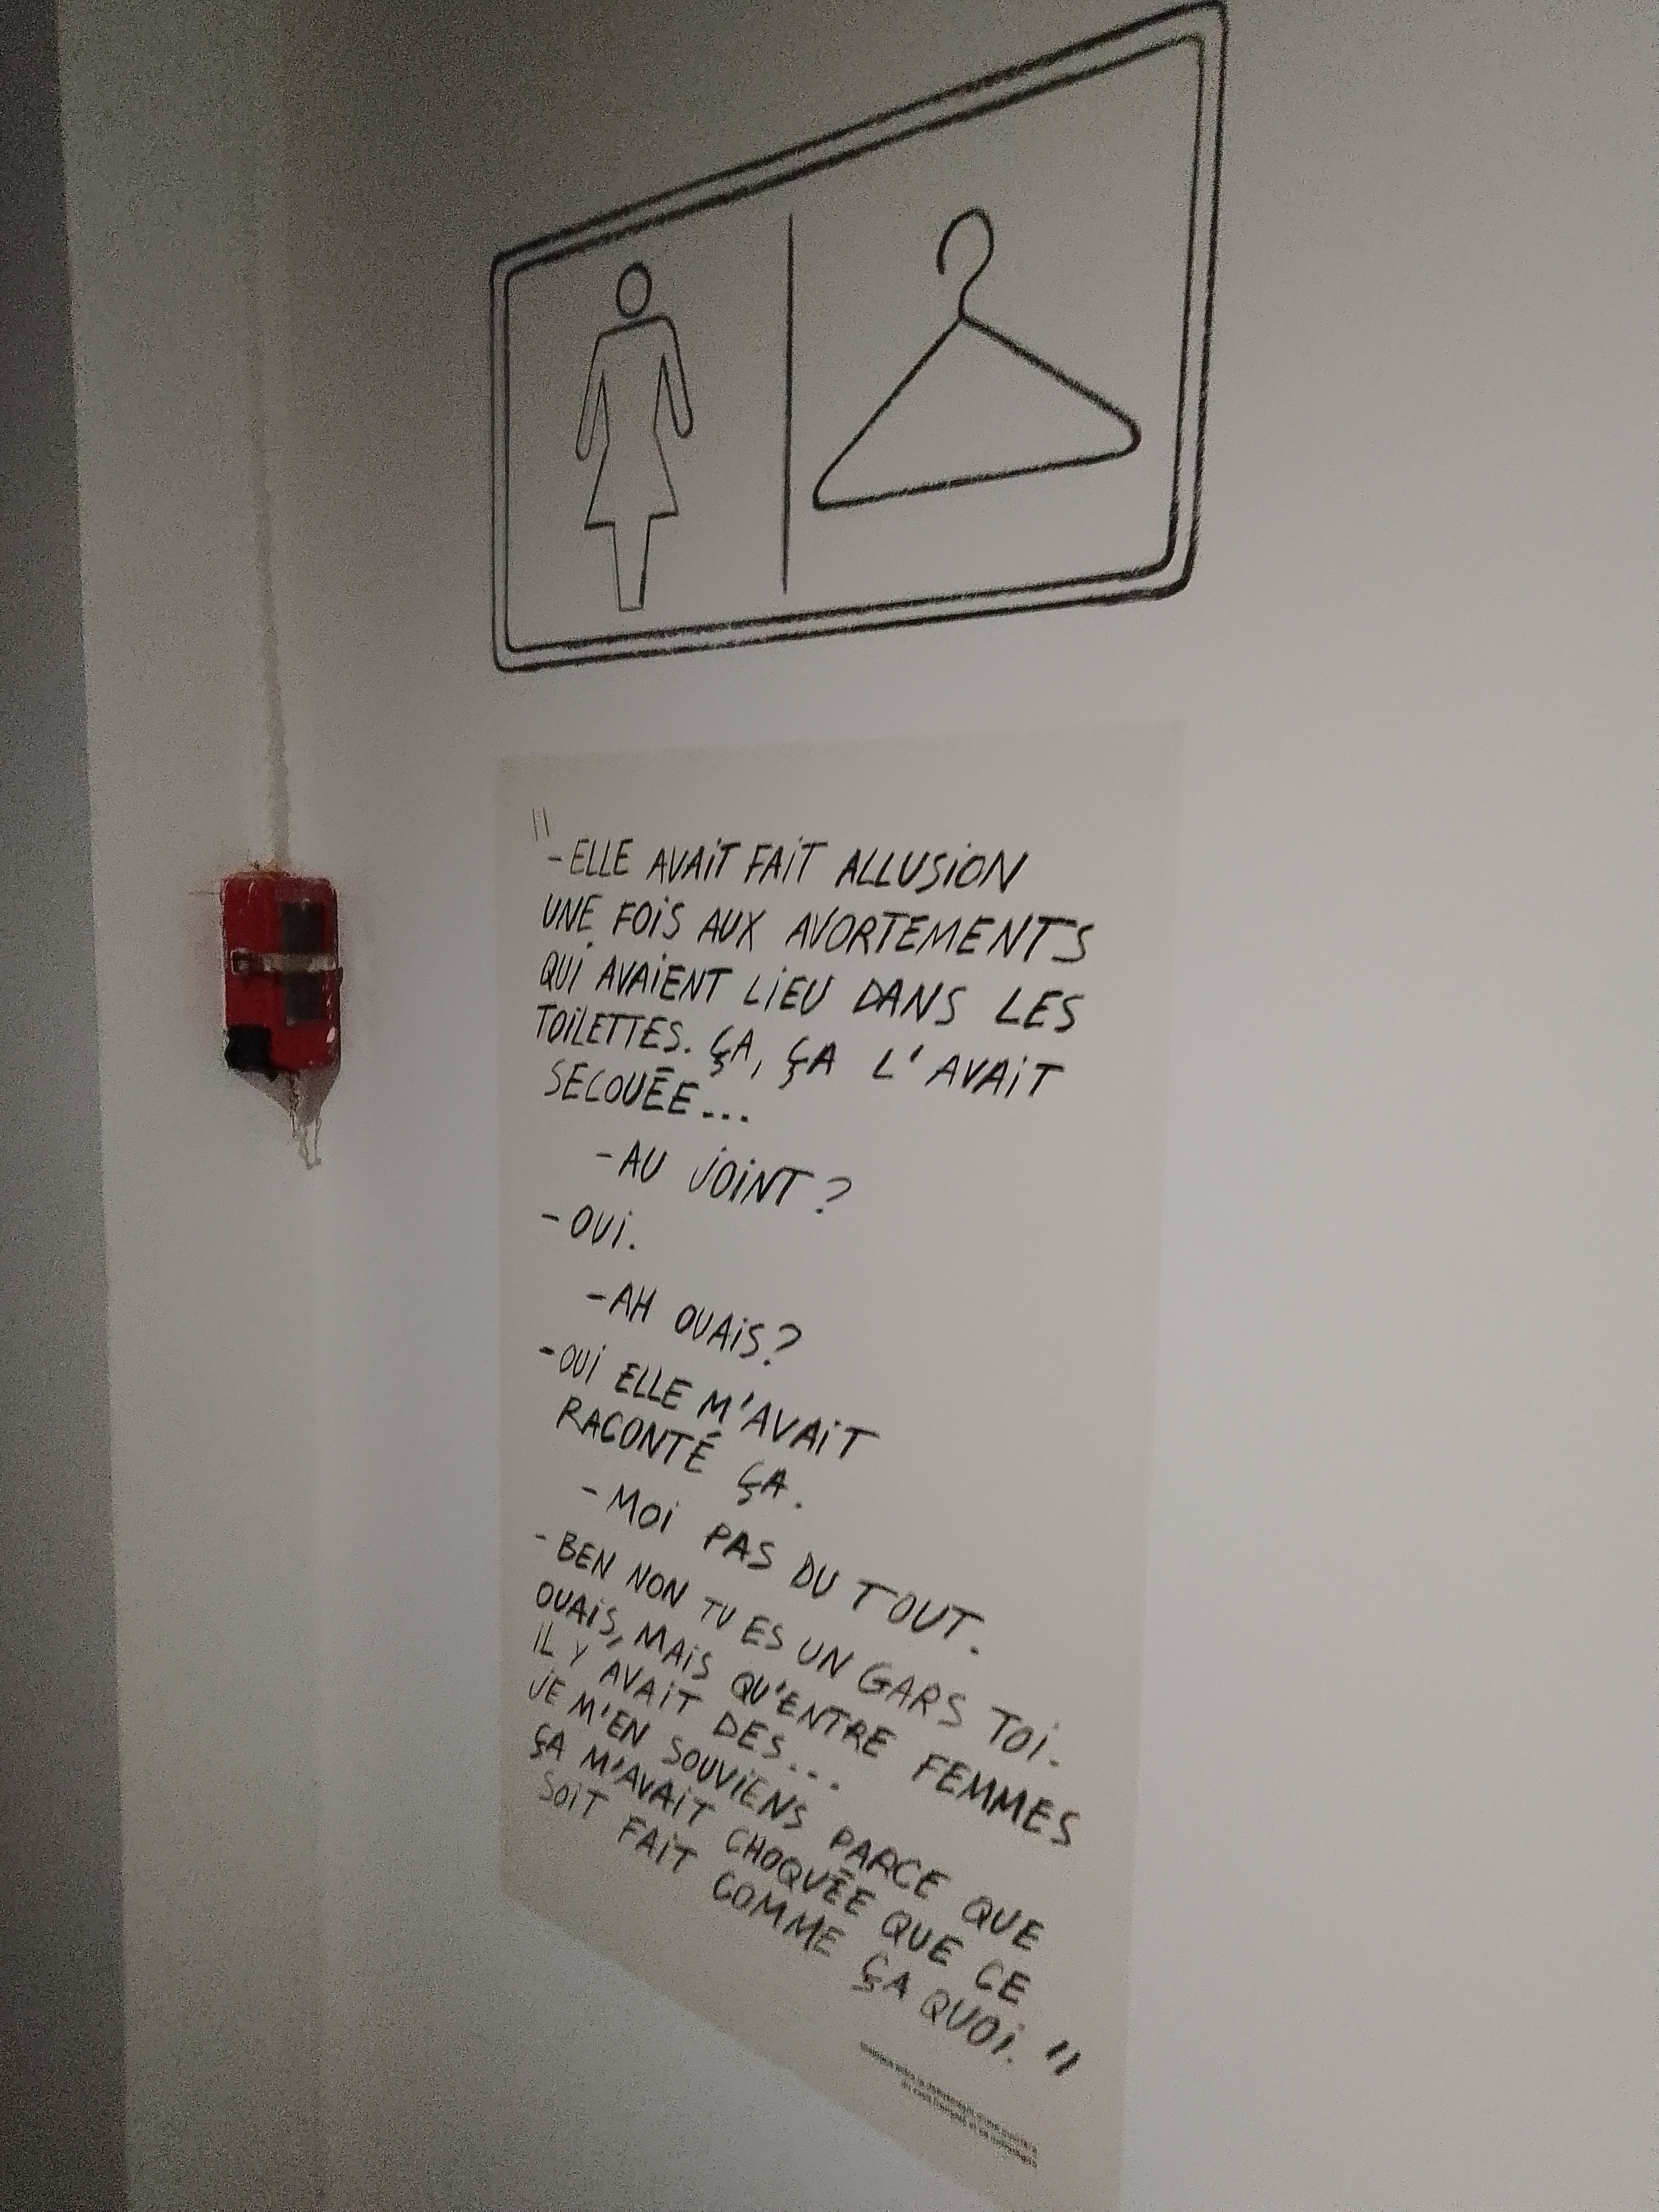 "
-ELLE AVAIT FAIT ALLUSION
UNE FOIS AUX AVORTEMENTS
QUI AVAIENT LIEU DANS LES
TOILETTES. ÇA, ÇA L'AVAIT
SECOUÉE...
-AU JOINT ?
-OUI.
-AH OUAIS?
-OUI ELLE M'AVAIT
RACONTÉ ÇA.
-MOI PAS DU TOUT.
-BEN NON TU ES UN GARS TOI.
OUAIS, MAIS QU'ENTRE FEMMES
IL Y AVAIT DES...
JE M'EN SOUVIENS PARCE QUE
ÇA M'AVAIT CHOQUÉE QUE CE
SOIT FAIT COMME ÇA QUOI. "